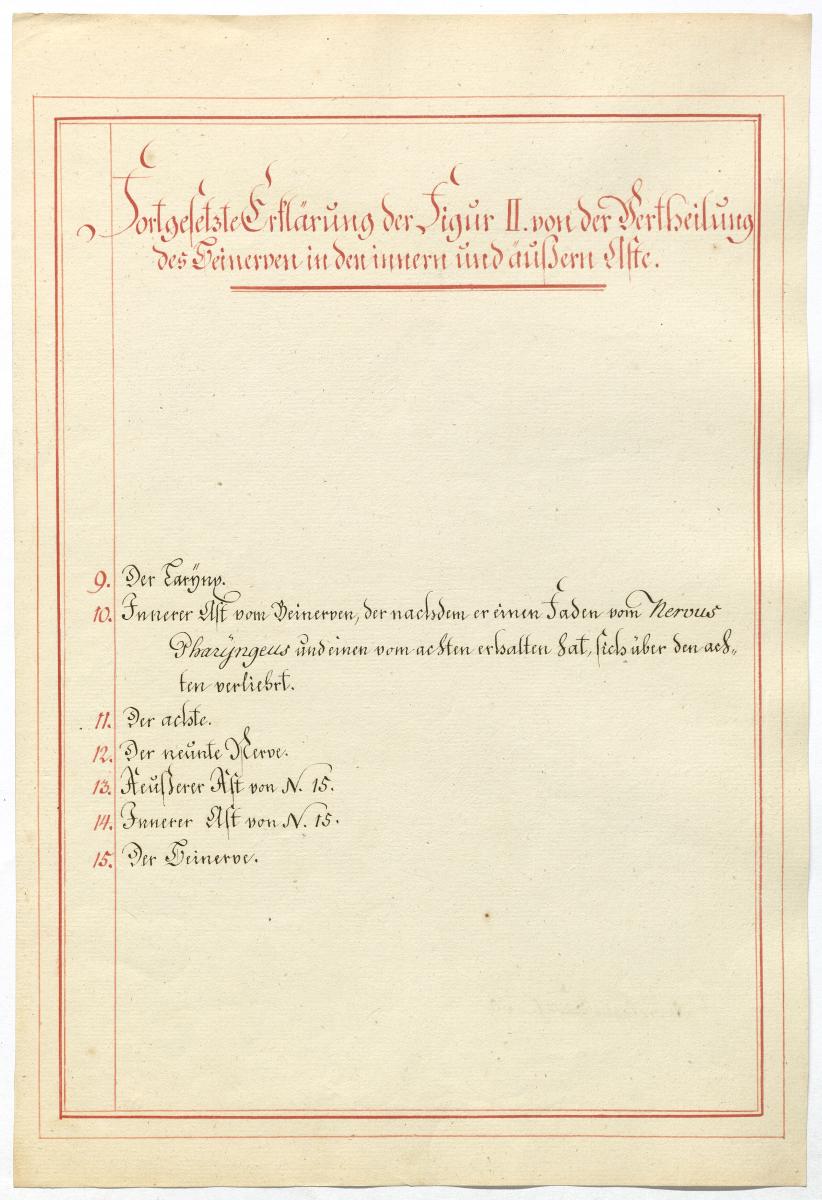 Fortgesetzte Erklärung der Figur II. von der Vertheilung
des Beinerven in den innern und äußern Aste.
9. Der Larÿnx.
10. Innerer Ast vom Beinerven, der nachdem er einen Faden vom Nervus
Pharÿngeus und einen vom achten erhalten hat, sich über den ach„
ten verliehrt.
11. Der achte.
12. Der neunte Nerve.
13. Aeußerer Ast von N. 15.
14. Innerer Ast von N. 15.
15. Der Beinerve.